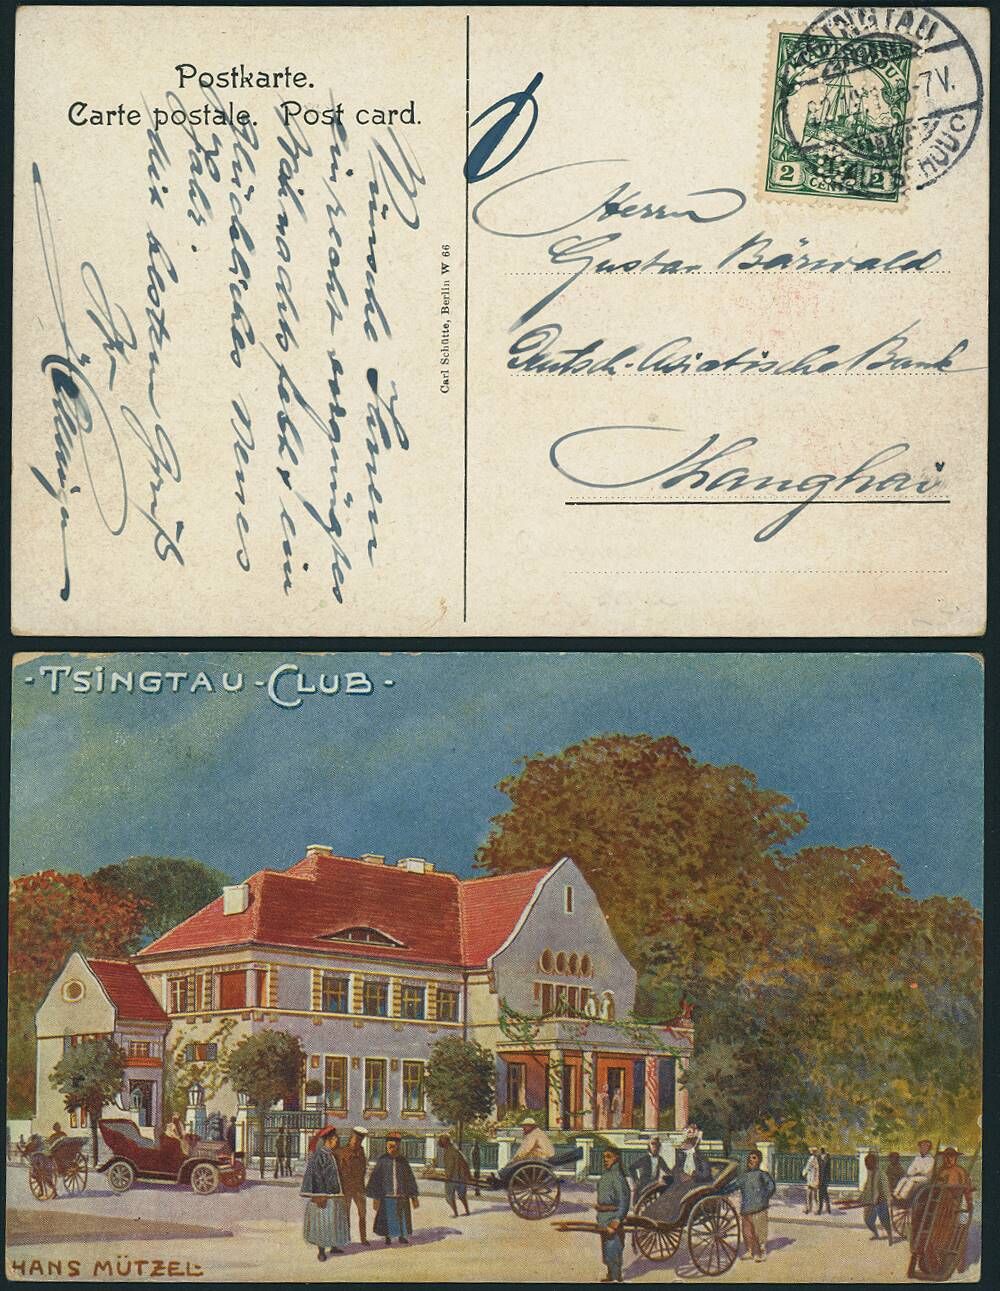 Postkarte.
Carte postale. Post card.
Wünsche Ihnen
ein recht vergnügtes
Weihnachtsfest & ein
glückliches Neues
Jahr.
Mit bestem Gruß
Ihr
Carl Schütte, Berlin W 66
TSINGTAU
KIAUTSCHOU
2 2
CENT
Herrn
Gustav Bärwald
Deutsch-Asiatische Bank
Shanghai
-TSINGTAU-CLUB-
HANS MÜTZEL